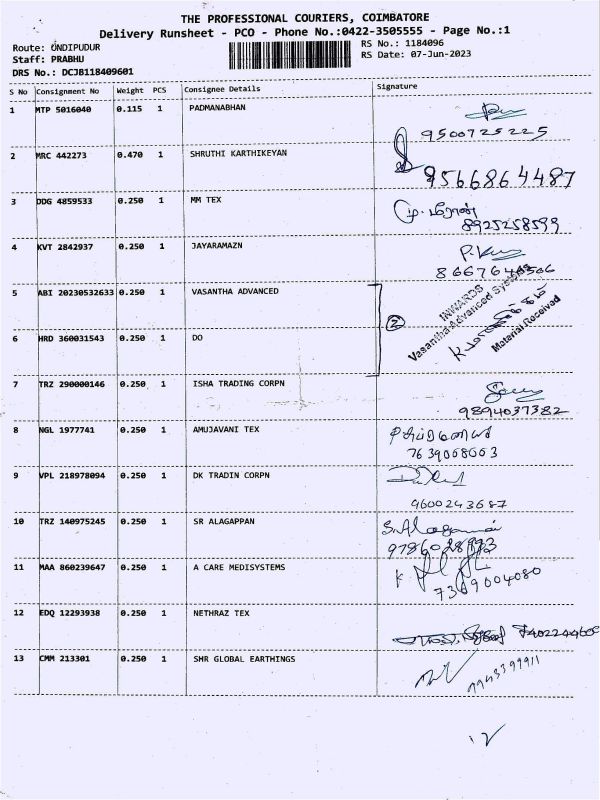 THE PROFESSIONAL COURIERS, COIMBATORE
Delivery Runsheet - PCO - Phone No.:0422-3505555 - Page No.:1
Route: ONDIPUDUR
RS No.: 1184096
Staff: PRABHU
RS Date: 07-Jun-2023
DRS No.: DCJB118409601
S No Consignment No Weight PCS Consignee Details Signature
1 MTP 5016040 0.115 1 PADMANABHAN
9500725225
2 MRC 442273 0.470 1 SHRUTHI KARTHIKEYAN
9566864487
3 DDG 4859533 0.250 1 MM TEX
8925258599
4 KVT 2842937 0.250 1 JAYARAMAZN
5 ABI 20230532633 0.250 1 VASANTHA ADVANCED
INWARDS
Vasantha Advanced Systems
Material Received
2
6 HRD 360031543 0.250 1 DO
7 TRZ 290000146 0.250 1 ISHA TRADING CORPN
9894037382
8 NGL 1977741 0.250 1 AMUJAVANI TEX
7639068663
9 VPL 218978094 0.250 1 DK TRADIN CORPN
9600243687
10 TRZ 140975245 0.250 1 SR ALAGAPPAN
11 MAA 860239647 0.250 1 A CARE MEDISYSTEMS
7369004080
12 EDQ 12293938 0.250 1 NETHRAZ TEX
13 CMM 213301 0.250 1 SHR GLOBAL EARTHINGS
9943399911